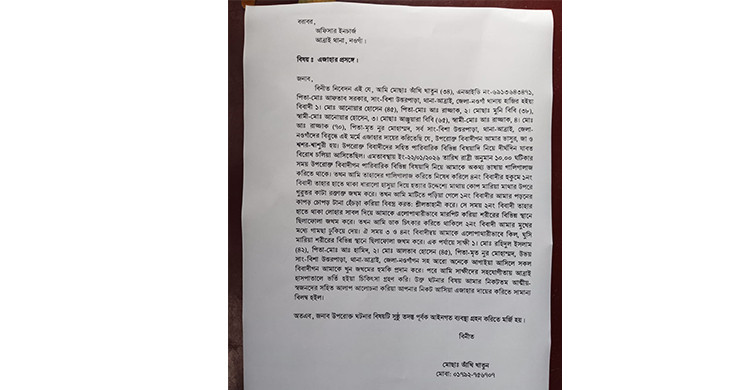 বরাবর,
অফিসার ইনচার্জ
আত্রাই থানা, নওগাঁ।
বিষয়ঃ এজাহার প্রসঙ্গে।
জনাব,
বিনীত নিবেদন এই যে, আমি মোছাঃ আঁখি খাতুন (৩৪), এনআইডি নং-৬৯১৩৬৪৩৪৭১,
পিতা-মোঃ আফতাব সরকার, সাং-বিশা উত্তরপাড়া, থানা-আত্রাই, জেলা-নওগাঁ থানায় হাজির হইয়া
বিবাদী ১। মোঃ আনোয়ার হোসেন (৪৫), পিতা-মোঃ আঃ রাজ্জাক, ২। মোছাঃ মুনি বিবি (৩৮),
স্বামী-মোঃ আনোয়ার হোসেন, ৩। মোছাঃ আঞ্জুয়ারা বিবি (৬৫), স্বামী-মোঃ আঃ রাজ্জাক, ৪। মোঃ
আঃ রাজ্জাক (৭০), পিতা-মৃত নুর মোহাম্মদ, সর্ব সাং-বিশা উত্তরপাড়া, থানা-আত্রাই, জেলা-
নওগাঁদের বিরুদ্ধে এই মর্মে এজাহার দায়ের করিতেছি যে, উপরোক্ত বিবাদীগন আমার ভাসুর, জা ও
শ্বশুর-শ্বাশুরী হয়। উপরোক্ত বিবাদীদের সহিত পারিবারিক বিভিন্ন বিষয়াদি নিয়ে দীর্ঘদিন যাবত
বিরোধ চলিয়া আসিতেছিল। এমতাবস্থায় ইং-২২/০২/২০২৬ তারিখ রাত্রী অনুমান ১০.০০ ঘটিকার
সময় উপরোক্ত বিবাদীগন পারিবারিক বিভিন্ন বিষয়াদি নিয়ে আমাকে অকথ্য ভাষায় গালিগালাজ
করিতে থাকে। তখন আমি তাহাদের গালিগালাজ করিতে নিষেধ করিলে ৪নং বিবাদীর হুকুমে ১নং
বিবাদী তাহার হাতে থাকা ধারালো হাসুয়া দিয়ে হত্যার উদ্দেশ্যে মাথায় কোপ মারিয়া মাথার উপরে
গুরুতর কাটা রক্তাক্ত জখম করে। তখন আমি মাটিতে পড়িয়া গেলে ১নং বিবাদীর আমার পড়নের
কাপড় চোপড় টানা হেঁচড়া করিয়া বিবস্ত্র করতঃ শ্রীলতাহানী করে। সে সময় ২নং বিবাদী তাহার
হাতে থাকা লোহার সাবল দিয়ে আমাকে এলোপাথারীভাবে মারপিট করিয়া শরীরের বিভিন্ন স্থানে
ছিলাফোলা জখম করে। তখন আমি ডাক চিৎকার করিতে থাকিলে ২নং বিবাদী আমার মুখের
মধ্যে গামছা ঢুকিয়ে দেয়। ঐ সময় ৩ ও ৪নং বিবাদীদ্বয় আমাকে এলোপাথারীভাবে কিল, ঘুসি
মারিয়া শরীরের বিভিন্ন স্থানে ছিলাফোলা জখম করে। এক পর্যায়ে সাক্ষী ১। মোঃ রহিদুল ইসলাম
(৪২), পিতা-মোঃ আঃ হামিদ, ২। মোঃ আলতাব হোসেন (৪৫), পিতা-মৃত নুর মোহাম্মদ, উভয়
সাং-বিশা উত্তরপাড়া, থানা-আত্রাই, জেলা-নওগাঁগন সহ আরো অনেকে আগাইয়া আসিলে সকল
বিবাদীগন আমাকে খুন জখমের হুমকি প্রদান করে। পরে আমি সাক্ষীদের সহযোগীতায় আত্রাই
হাসপাতালে ভর্তি হইয়া চিকিৎসা গ্রহণ করি। উক্ত ঘটনার বিষয় আমার নিকটতম আত্মীয়-
স্বজনদের সহিত আলাপ আলোচনা করিয়া আপনার নিকট আসিয়া এজাহার দায়ের করিতে সামান্য
বিলম্ব হইল।
অতএব, জনাব উপরোক্ত ঘটনার বিষয়টি সুষ্ঠু তদন্ত পূর্বক আইনগত ব্যবস্থা গ্রহন করিতে মর্জি হয়।
বিনীত
মোছাঃ আঁখি খাতুন
মোবাঃ ০১৭৯২-৭৫৬৭০৭